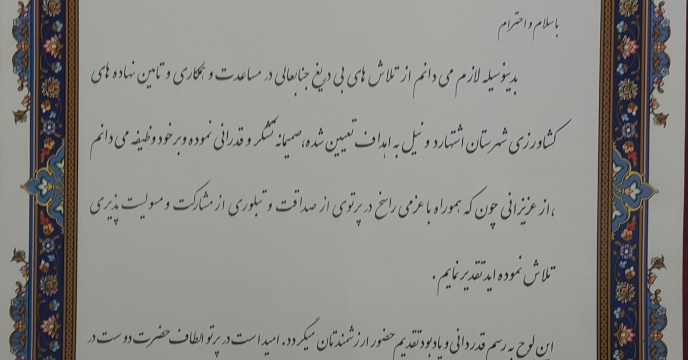 باسلام و احترام
بدینوسیله لازم می دانم از تلاش های بی دریغ جنابعالی در مساعدت و همکاری و تامین نهاده های
کشاورزی شهرستان اشتهارد و نیل به اهداف تعیین شده،صمیمانه تشکر و قدرانی نموده و بر خود وظیفه می دانم
،از عزیزانی چون که هموراه با عزمی راسخ در پرتوی از صداقت و تبلوری از مشارکت و مسولیت پذیری
تلاش نموده اید تقدیر نمایم .
این لوح به رسم قدردانی و یادبود تقدیم حضور ارزشمندتان میگردد. امید است در پرتو الطاف حضرت دوست در